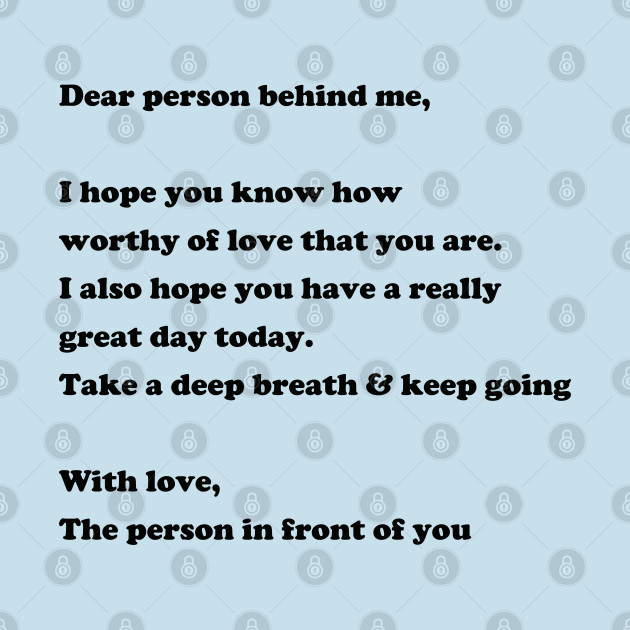 Dear person behind me,
I hope you know how
worthy of love that you are.
I also hope you have a really
great day today.
Take a deep breath & keep going
With love,
The person in front of you